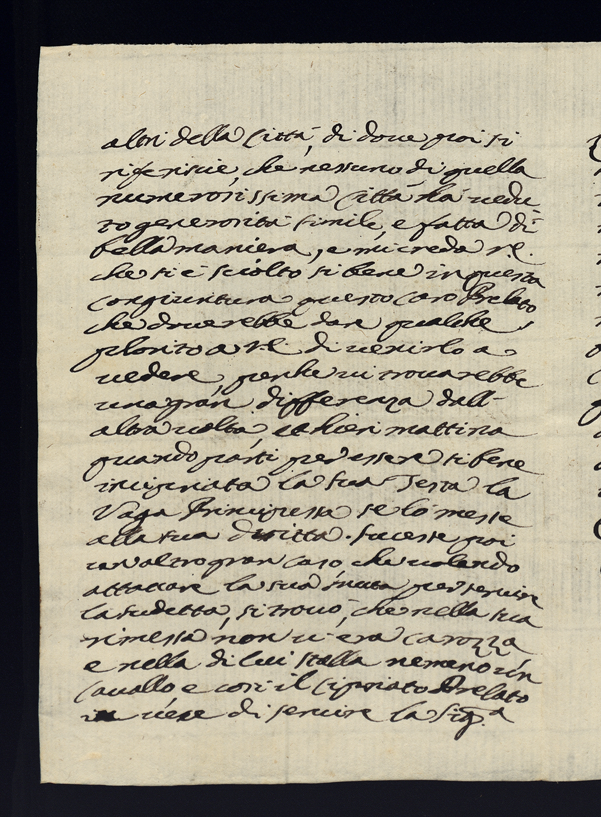 altri della Città, di doue poi si
riferisce, che nessuno di quella
numerosissima Città hà uedu-
to generosità simile, e fatta di
bella maniera, e mi creda V.E.
che si è sciolto si bene in questa
congiuntura questo caro Prelato,
che douerebbe dar qualche
plorito a V.E. di uenirlo a
uedere, perche ui trouarebbe
una gran differenza dall'
altra uolta, et hieri mattina
quando partì per esser si bene
incipriata la sua Testa la
Vaga Principessa se lo messe
alla sua dritta. Sucesse poi
un altro gran caso che uolendo
attacare la sua muta per seruire
la sudetta, si trouò, che nella sua
rimessa non ui era carozza
e nella di lui stalla nemeno un
cauallo e così il cipriato Prelato
in uece di seruire la Sig.ra